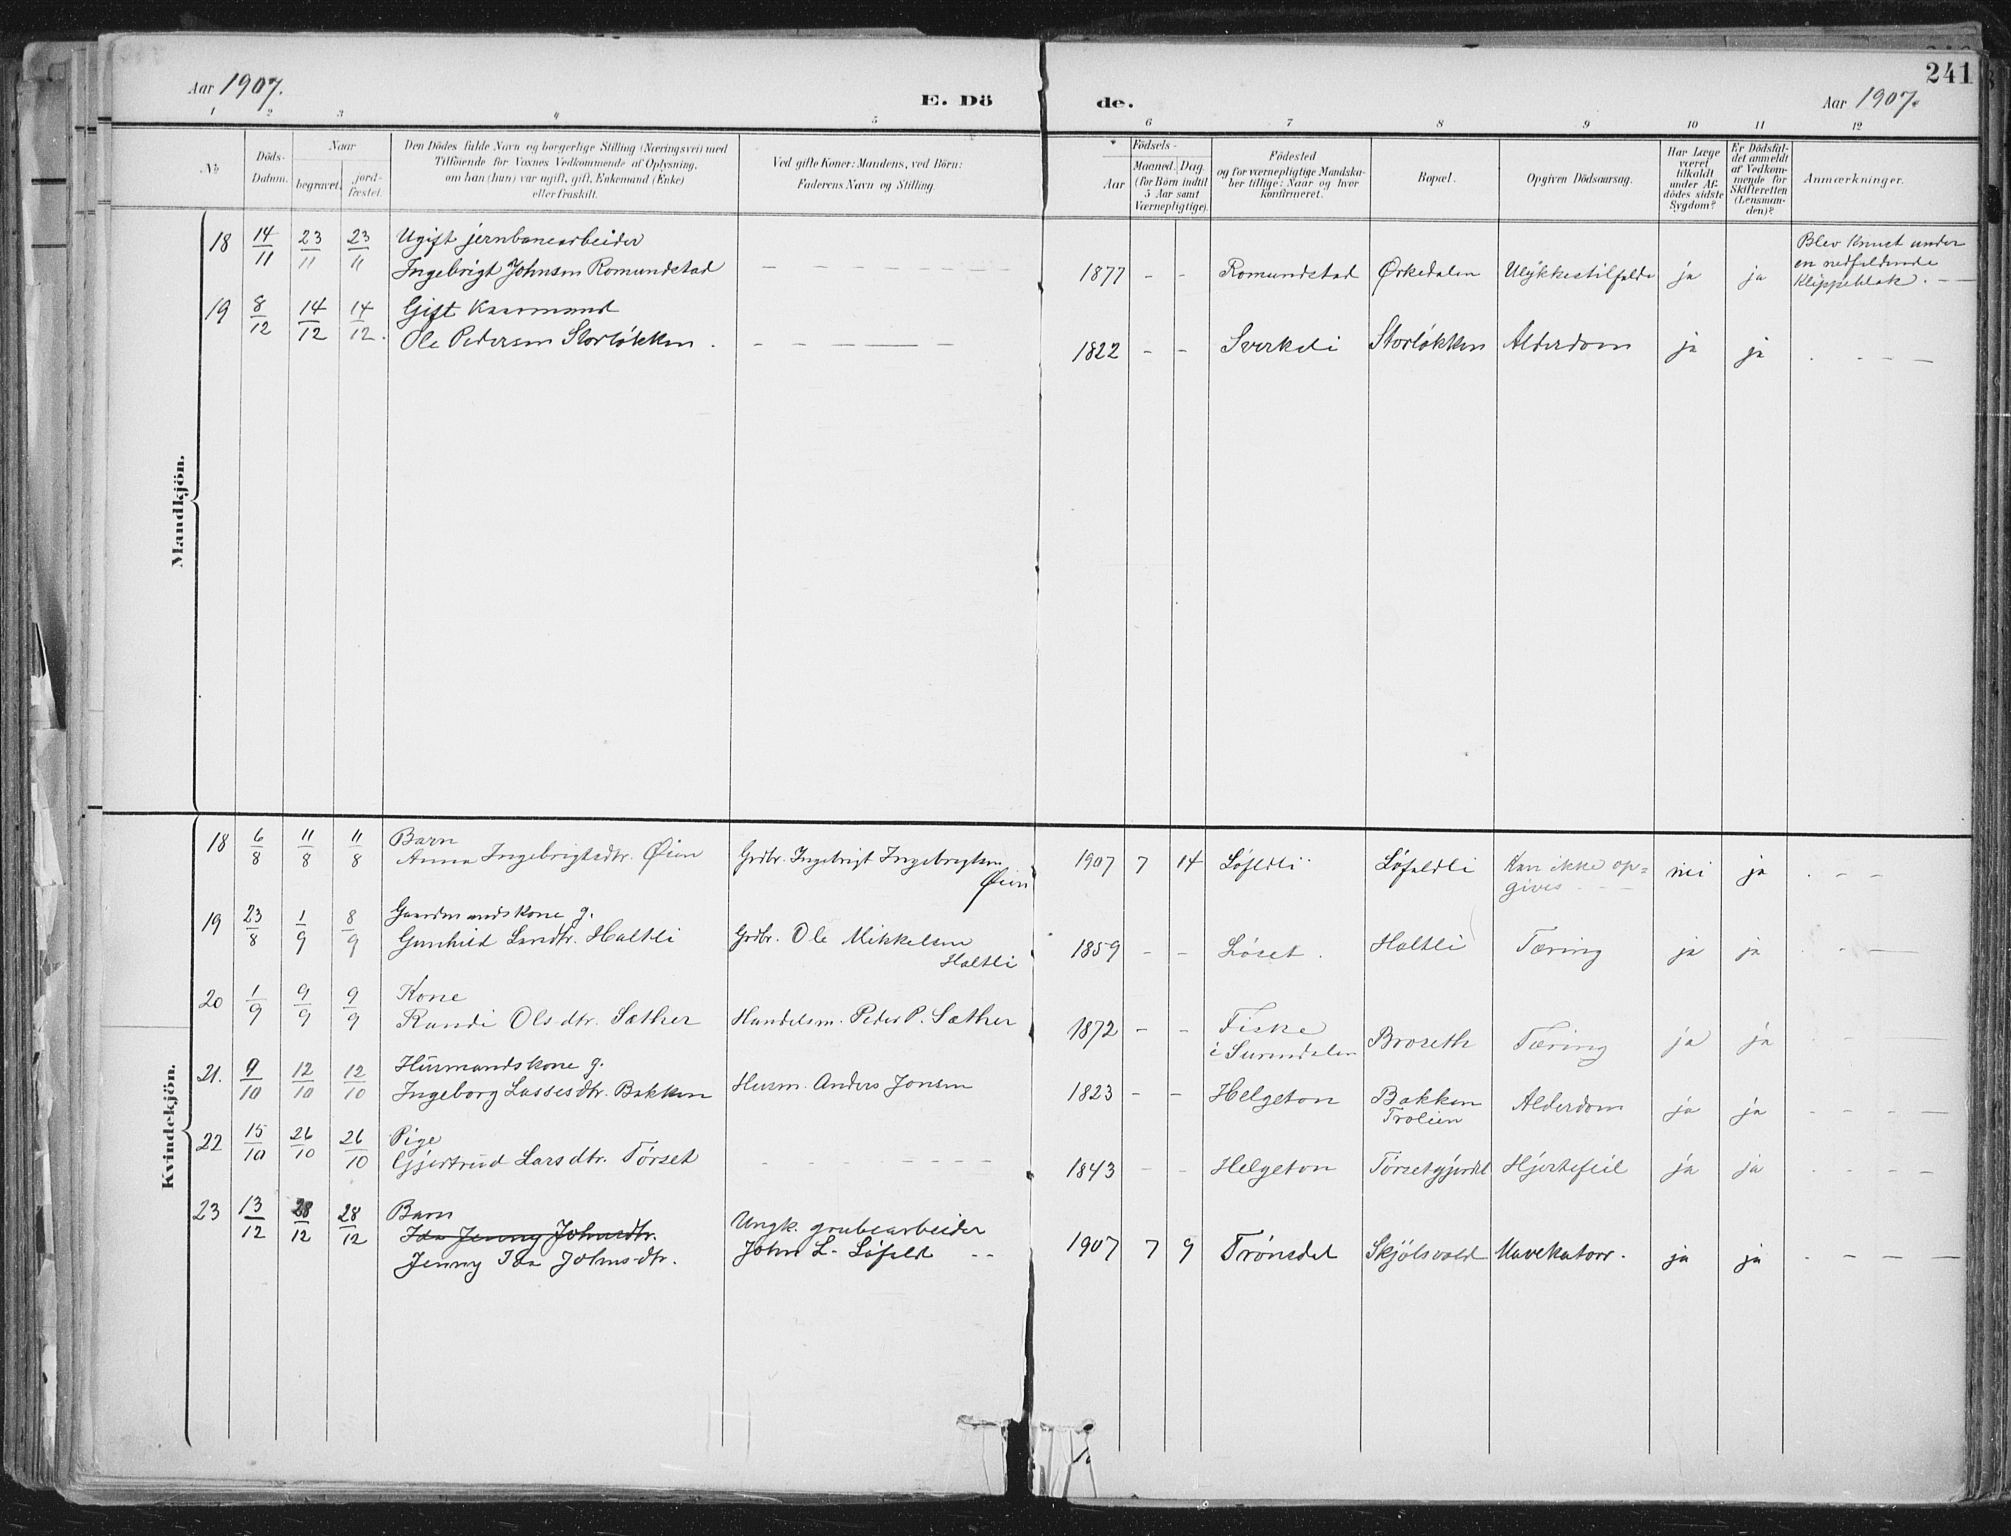 241
Aar 1907.
E. Dö de.
Aar 1907.
1 2 3 4 5 6 7 8 9 10 11 12
No
Döds-Datum.
Naar
begravet.
jord-fæstet.
Den Dödes fulde Navn og borgerlige Stilling (Næringsvei) med
Tilföiende for Voxnes Vedkommende af Oplysning,
om han (hun) var ugift, gift, Enkemand (Enke)
eller fraskilt.
Ved gifte Koner: Mandens, ved Börn:
Faderens Navn og Stilling.
Födsels-
Aar
Maaned. Dag.
(for Börn indtil
5 Aar samt
Værnepligtige).
Födested
og for værnepligtige Mandska-
ber tillige: Naar og hvor
konfirmeret.
Bopæl.
Opgiven Dödsaarsag.
Har Læge
været
tilkaldt
under Af-
dödes sidste
Sygdom?
Er Dödsfal-
det anmeldt
af Vedkom-
mende for
Skifteretten
(Lensman-
den)?
Anmærkninger.
Mandkjön.
18 14/11 23/11 23/11 Ugift jernbanearbeider
Ingebrigt Johnsen Romundstad – – – 1877 – – Romundstad Ørkedalen Ulykkestilfælde ja ja Blev knust under
en nedfaldende
Klippeblok.
19 8/12 14/12 14/12. Gift Kaarmand
Ole Pedersen Storløkken. – – – 1822 – – Sverkeli Storløkken Alderdom ja ja – – –
Kvindekjön.
18 6/8 11/8 11/8 Barn
Anna Ingebrigtsdtr. Øien Grdbr. Ingebrigt Ingebrigtsen
Øien 1907 7 14 Løfldli Løfaldli Kan ikke op=
gives nei ja – – –
19 23/8 1/9 8/9 Gaardmandskone g.
Gunhild Larsdtr. Holtli Grdbr. Ole Mikkelsen
Holtli 1859 – – Løset. Holtli Tæring ja ja – – –
20 1/9 9/9 9/9 Kone
Randi Olsdtr. Sæther Handelsm. Peder P. Sæther 1872 – – Fiske
i Surendalen Broseth Tæring ja ja
21. 9/10 12/10 12/10 Husmandskone g.
Ingeborg Lassesdtr. Bakken Husm. Anders Jonsen 1823 – – Helgeton Bakken
Trolien Alderdom ja ja – – –
22 15/10 26/10 26/10 Pige
Gjertrud Larsdtr. Tørset – – – 1843 – – Helgeton Tørsetgjerdet Hjertefeil ja ja – – –
23 13/12 28/12 28/12 Barn
Ida Jenny Johnsdtr.
Jenny Ida Johnsdtr. Ungk. grubearbeider
John L. Løfald 1907 7 9 Trønsdal Skjølsvold Mavekatarr. ja ja – – –